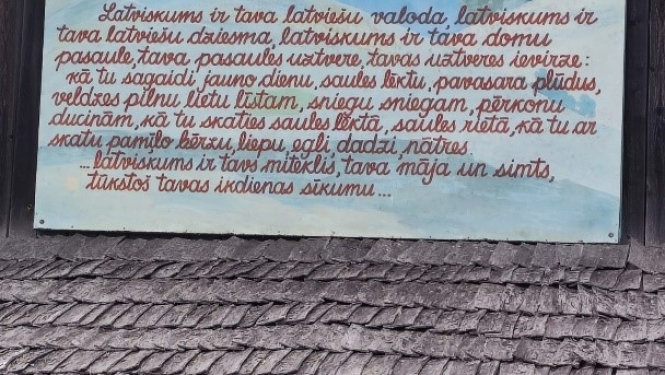 Latviskums ir tava latviešu valoda, latviskums ir
tava latviešu dziesma, latviskums ir tava domu
pasaule, tava pasaules uztvere, tavas uztveres ievirze:
kā tu sagaidi jauno dienu, saules lēktu, pavasara plūdus,
veldzes pilnu lietu līstam, sniegu sniegam, pērkonu
ducinām, kā tu skaties saules lēktā, saules rietā, kā tu ar
skatu pamīļo bērzu, liepu, egli, dadzi, nātres.
... latviskums ir tavs miteklis, tava māja un simts,
tūkstoš tavas ikdienas sīkumu...